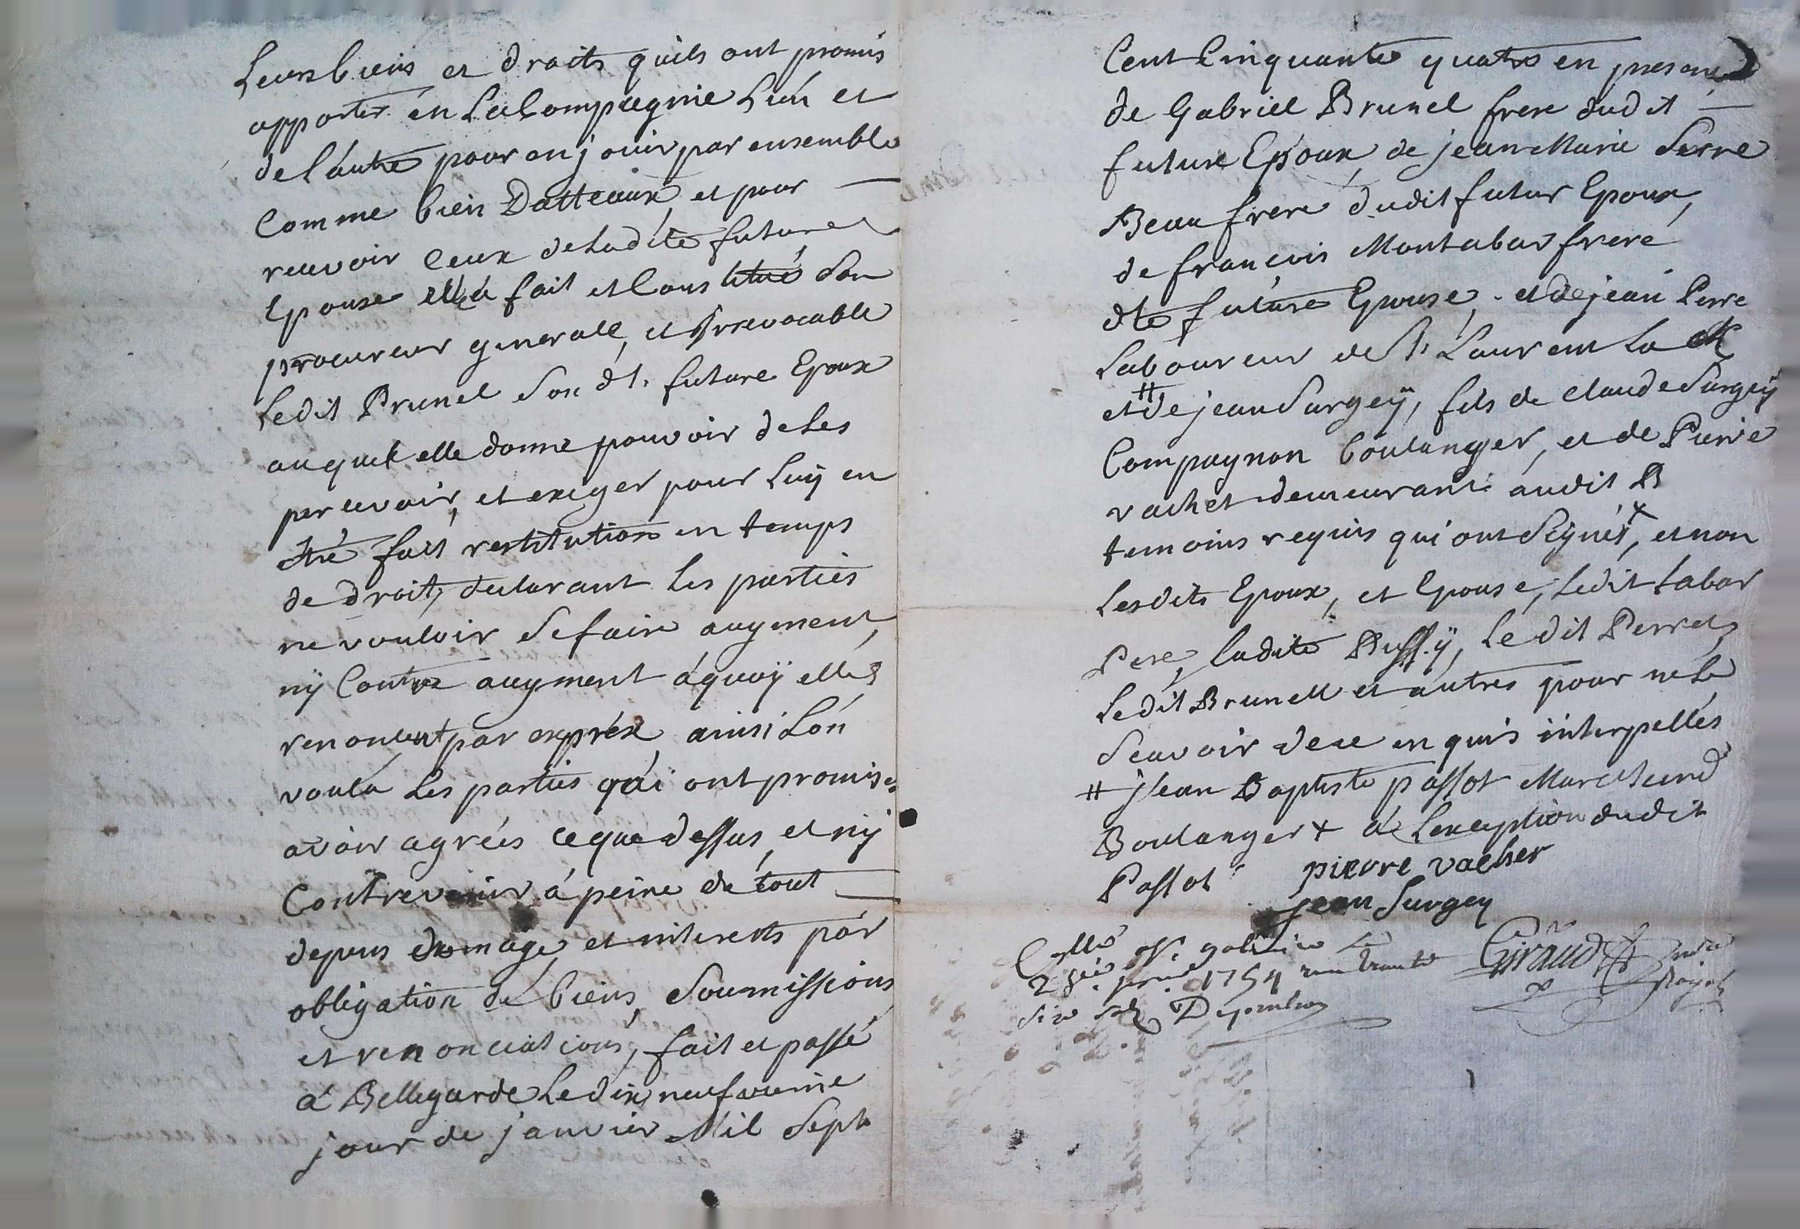 Leurs biens et droits quils ont promis
apporter en La Compagnie Lun et
de l'autre pour en jouir par ensemble
Comme bien Dotteaux et pour
recevoir Ceux de Ladite future
Epouse Elle a fait et Constitué Son
procureur generalle, et Irrevocable
Ledit Brunel Son dt. future Epoux
auquel elle donne pouvoir de Les
percevoir, et exiger pour Luÿ en
etre fait restitution en temps
de droit, declarant Les parties
ne vouloir Se faire augment,
nÿ Contre augment à quoÿ elles
renoncent par exprex ainsi Lon
voulu Les parties qui ont promises
avoir agrées ce que dessus, et nÿ
Contrevenir á peine de tout
depens domage, et interests par
obligation de biens, Soumissions
et renonciations, fait et passé
a Bellegarde Le dix neufvieme
jour de janvier Mil Sept
Cent Cinquante quatre en presence
de Gabriel Brunel frere dudit
future Epoux, de jean Marie Serre
Beau frere dudit futur Epoux,
de francois Montabar frere
dte future Epouse, et de jean Perre
Laboureur de St Laurent La
et # de jean Surgeÿ, fils de Claude Surgeÿ
Compagnon boulanger, et de Pierre
vachet demeurant audit B
temoins requis qui ont Signés +, et non
Lesdits Epoux, et Epouse, Ledit tabar
Pere, Ladite Bussÿ, Le dit Perret,
Ledit Brunell et autres pour ne Le
Scavoir de ce enquis interpellés
# jean Baptiste passot Marchand
Boulanger + a Lexeption dudit
Passot
pierre vacher
jean Surgey
Giraud
28e. jer. 1754
Six Sols